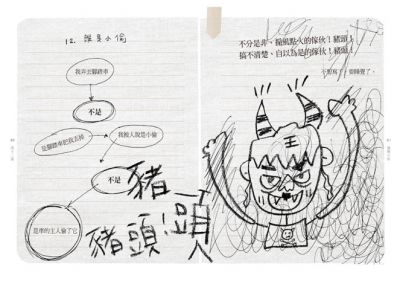 12. 誰是小偷
我弄丟腳踏車
不是
是腳踏車把我丟掉
我被人說是小偷
不是
是車的主人偷了它
豬頭
豬頭人
不分是非、搧風點火的傢伙！豬頭！
搞不清楚、自以為是的傢伙！豬頭！
王